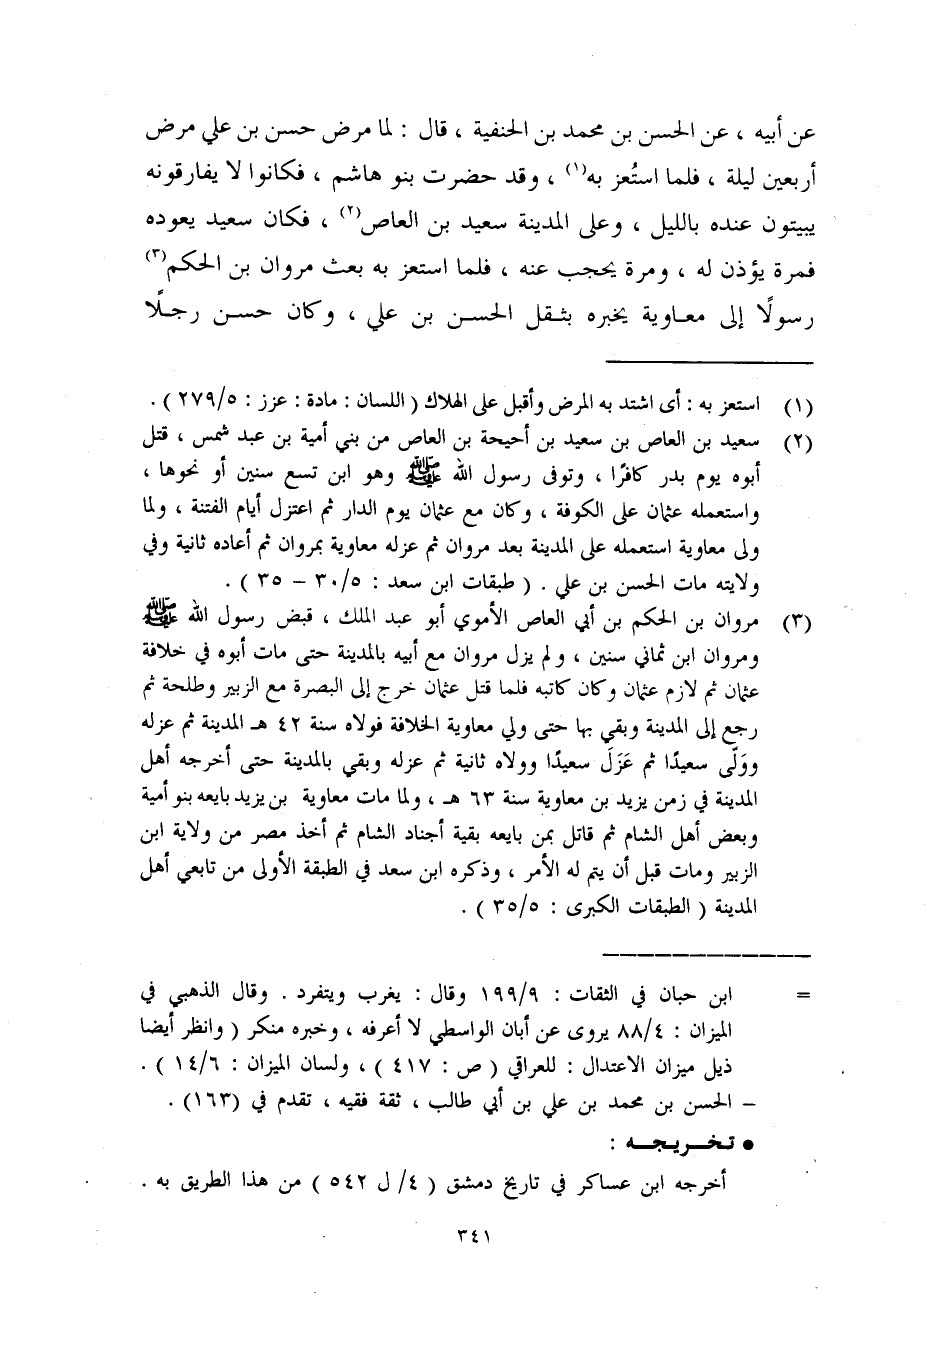 عن أبيه ، عن الحسن بن محمد بن الحنفية ، قال : لما مرض حسن بن علي مرض
أربعين ليلة ، فلما استُعز به(١) ، وقد حضرت بنو هاشم ، فكانوا لا يفارقونه
يبيتون عنده بالليل ، وعلى المدينة سعيد بن العاص(٢) ، فكان سعيد يعوده
فمرة يؤذن له ، ومرة يحجب عنه ، فلما استعز به بعث مروان بن الحكم(٣)
رسولًا إلى معاوية يخبره بثقل الحسن بن علي ، وكان حسن رجلًا
(١) استعز به : أى اشتد به المرض وأقبل على الهلاك ( اللسان : مادة : عزز : ٢٧٩/٥ ) .
(٢) سعيد بن العاص بن سعيد بن أحيحة بن العاص من بني أمية بن عبد شمس ، قتل
أبوه يوم بدر كافرًا ، وتوفى رسول الله ﷺ وهو ابن تسع سنين أو نحوها ،
واستعمله عثمان على الكوفة ، وكان مع عثمان يوم الدار ثم اعتزل أيام الفتنة ، ولما
ولى معاوية استعمله على المدينة بعد مروان ثم عزله معاوية بمروان ثم أعاده ثانية وفي
ولايته مات الحسن بن علي . ( طبقات ابن سعد : ٣٠/٥ – ٣٥ ) .
(٣) مروان بن الحكم بن أبي العاص الأموي أبو عبد الملك ، قبض رسول الله ﷺ
ومروان ابن ثماني سنين ، ولم يزل مروان مع أبيه بالمدينة حتى مات أبوه في خلافة
عثمان ثم لازم عثمان وكان كاتبه فلما قتل عثمان خرج إلى البصرة مع الزبير وطلحة ثم
رجع إلى المدينة وبقي بها حتى ولي معاوية الخلافة فولاه سنة ٤٢ هـ المدينة ثم عزله
ووَلّى سعيدًا ثم عَزَلَ سعيدًا وولاه ثانية ثم عزله وبقي بالمدينة حتى أخرجه أهل
المدينة في زمن يزيد بن معاوية سنة ٦٣ هـ ، ولما مات معاوية بن يزيد بايعه بنو أمية
وبعض أهل الشام ثم قاتل بمن بايعه بقية أجناد الشام ثم أخذ مصر من ولاية ابن
الزبير ومات قبل أن يتم له الأمر ، وذكره ابن سعد في الطبقة الأولى من تابعي أهل
المدينة ( الطبقات الكبرى : ٣٥/٥ ) .
= ابن حبان في الثقات : ١٩٩/٩ وقال : يغرب ويتفرد . وقال الذهبي في
الميزان : ٨٨/٤ يروى عن أبان الواسطي لا أعرفه ، وخبره منكر ( وانظر أيضا
ذيل ميزان الاعتدال : للعراقي ( ص : ٤١٧ ) ، ولسان الميزان : ١٤/٦ ) .
– الحسن بن محمد بن علي بن أبي طالب ، ثقة فقيه ، تقدم في (١٦٣) .
● تخريجه :
أخرجه ابن عساكر في تاريخ دمشق ( ٤/ ل ٥٤٢ ) من هذا الطريق به .
٣٤١